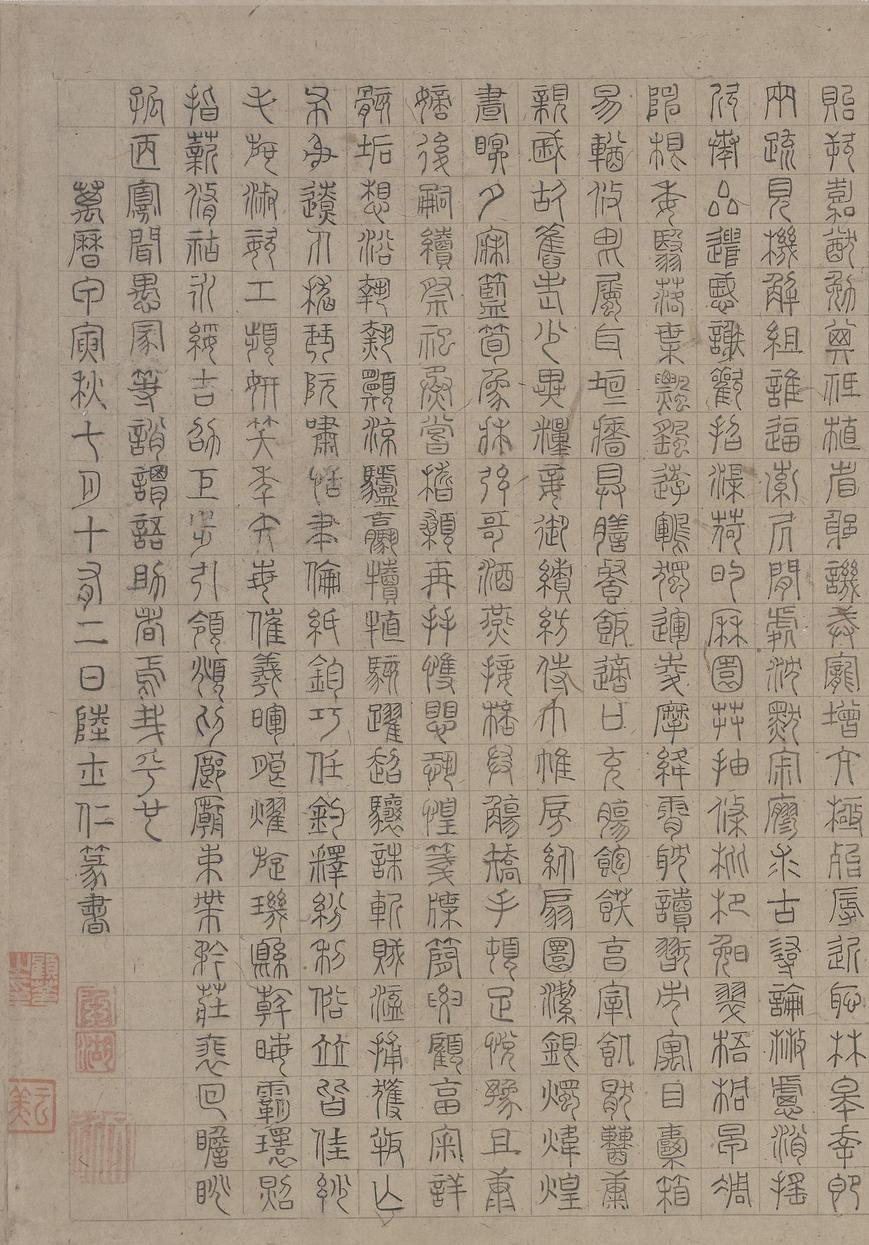 貽厥嘉猷勉其祗植省躬譏誡寵增抗極殆辱近恥林皋幸即
兩疏見機解組誰逼索居閒處沉默寂寥求古尋論散慮逍遙
欣奏累遣慼謝歡招渠荷的歷園莽抽條枇杷晚翠梧桐早凋
陳根委翳落葉飄颻遊鵾獨運凌摩絳霄耽讀翫市寓目囊箱
易輶攸畏屬耳垣牆具膳餐飯適口充腸飽飫亨宰飢厭糟糠
親戚故舊老少異糧妾御績紡侍巾帷房紈扇圓潔銀燭煒煌
晝瞑夕寐藍筍象牀弦歌酒燕接杯舉觴矯手頓足悅豫且康
嫡後嗣續祭祀烝嘗稽顙再拜悚懼恐惶牋牒簡要顧答審詳
骸垢想浴執熱願涼驢驘犢特駭躍超驤誅斬賊盜捕獲叛亡
布射遼丸嵇琴阮嘯恬筆倫紙鈞巧任釣釋紛利俗並皆佳妙
毛施淑姿工顰妍笑年矢每催羲暉朗曜旋璣懸斡晦魄環照
指薪脩祜永綏吉劭矩步引領頫仰廊廟束帶矜莊徘徊瞻眺
孤陋寡聞愚蒙等誚謂語助者焉哉乎也
萬曆甲寅秋七月十有二日陸士仁篆書